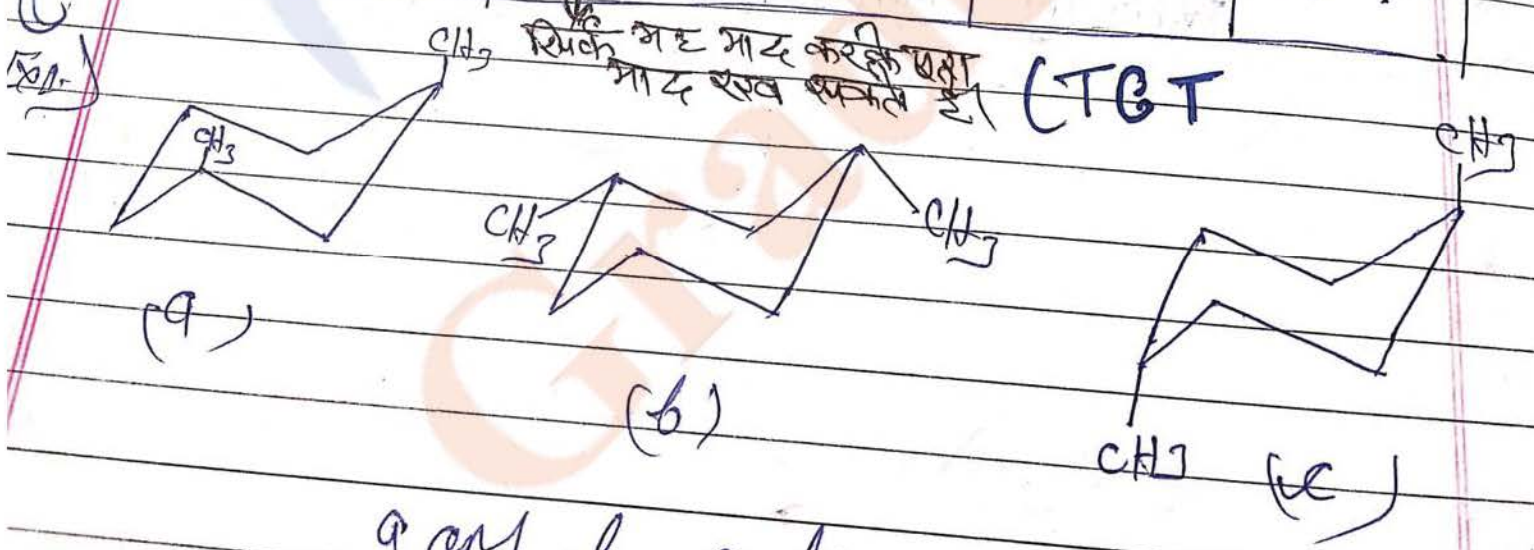 Ex:-)
सिर्फ यह याद करके पूरा
याद रख सकते है।
(TGT
CH3
CH3
CH3
CH3
CH3
CH3
(a)
(b)
(c)